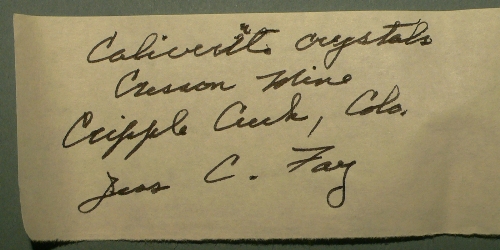 Caliverite crystals
Cresson Mine
Cripple Creek, Colo.
Jess C. Fay